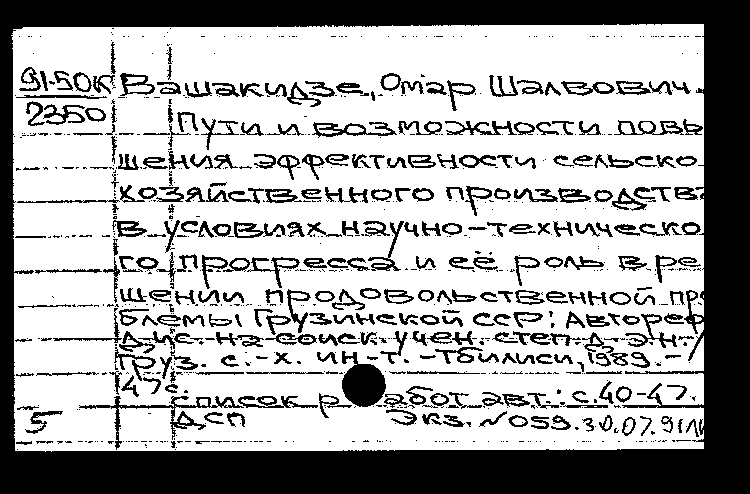 91-50К Вашакидзе, Омар Шалвович.
2350
Пути и возможности повы
шения эффективности сельско
хозяйственного производства
в условиях научно-техническо
го прогресса и её роль в ре
шении продовольственной про
блемы Грузинской ССР: Автореф
дис. на соиск. учен. степ. д. э. н. /
Груз. с.-х. ин-т. -Тбилиси, 1989. -
47 с.
список работ авт.: с. 40-47.
5 ДСП Экз. №059. 30.07.91